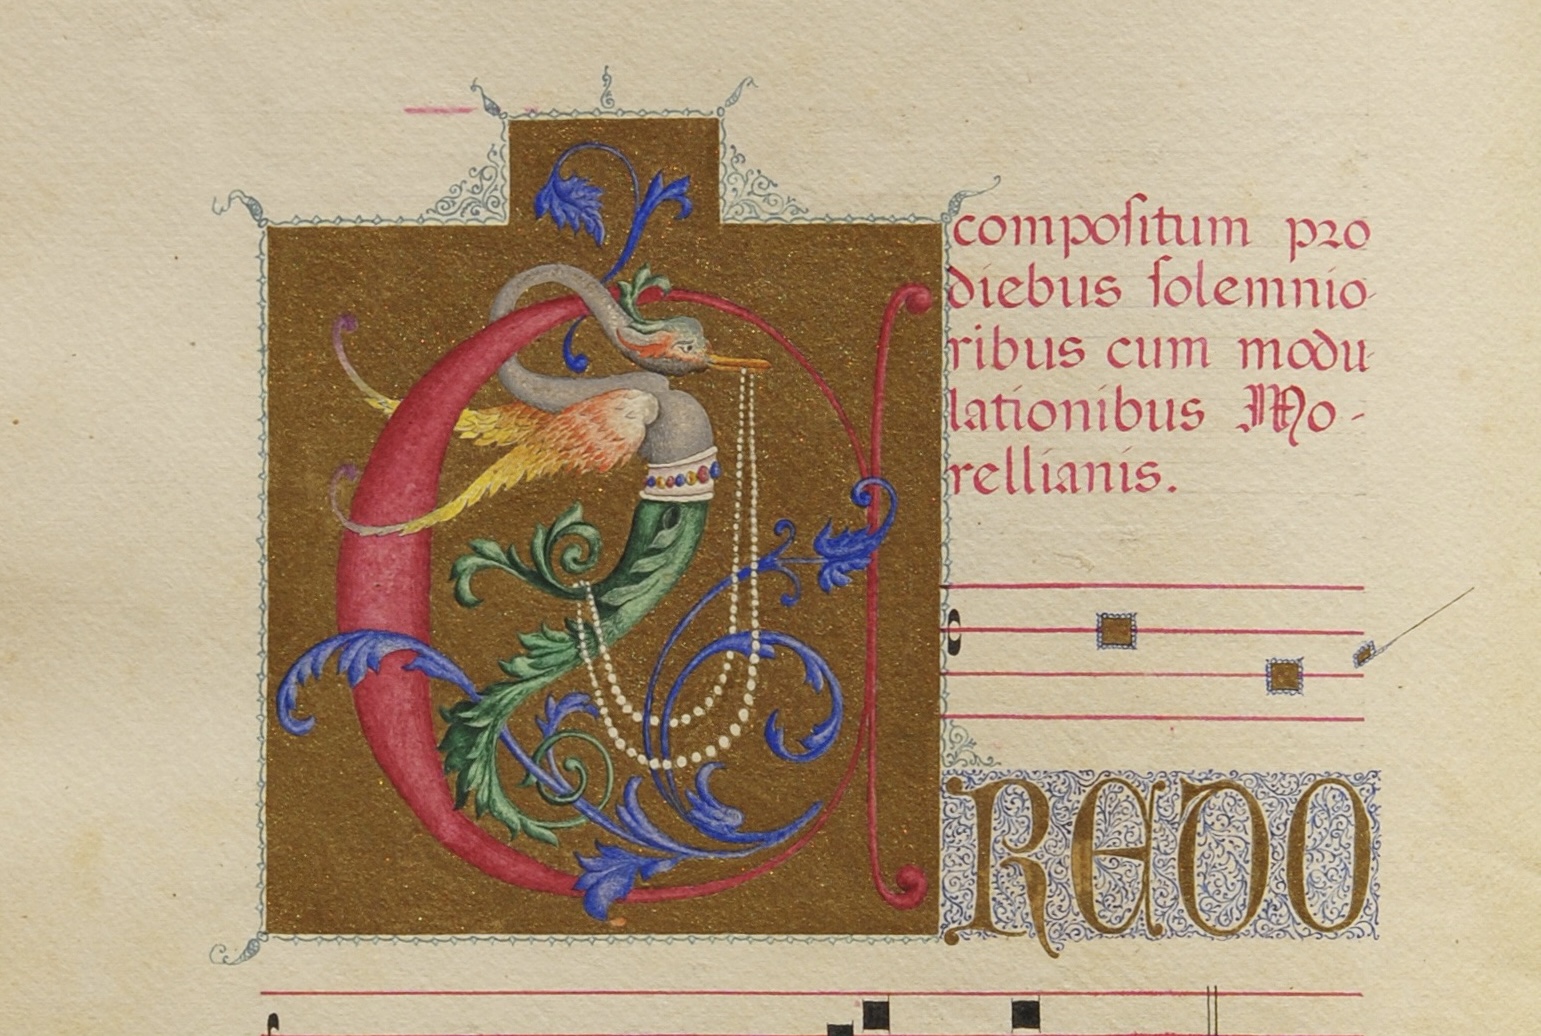 compoſitum pro
diebus ſolemnio-
ribus cum modu-
lationibus Mo-
rellianis.
CREDO